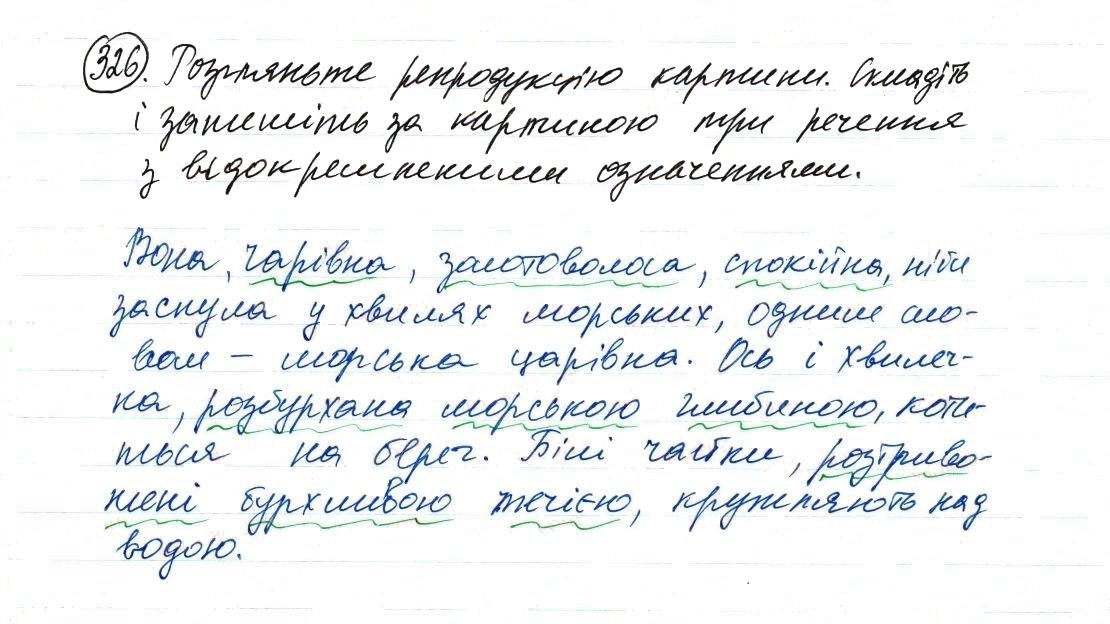 326. Розгляньте репродукцію картини. Складіть
і запишіть за картиною три речення
з відокремленими означеннями.
Вона, чарівна, золотоволоса, спокійна, ніби
заснула у хвилях морських, одним сло-
вом – морська царівна. Ось і хвилеч-
ка, розбурхана морською глибиною, коти-
ться на берег. Білі чайки, розтриво-
жені бурхливою течією, кружляють над
водою.